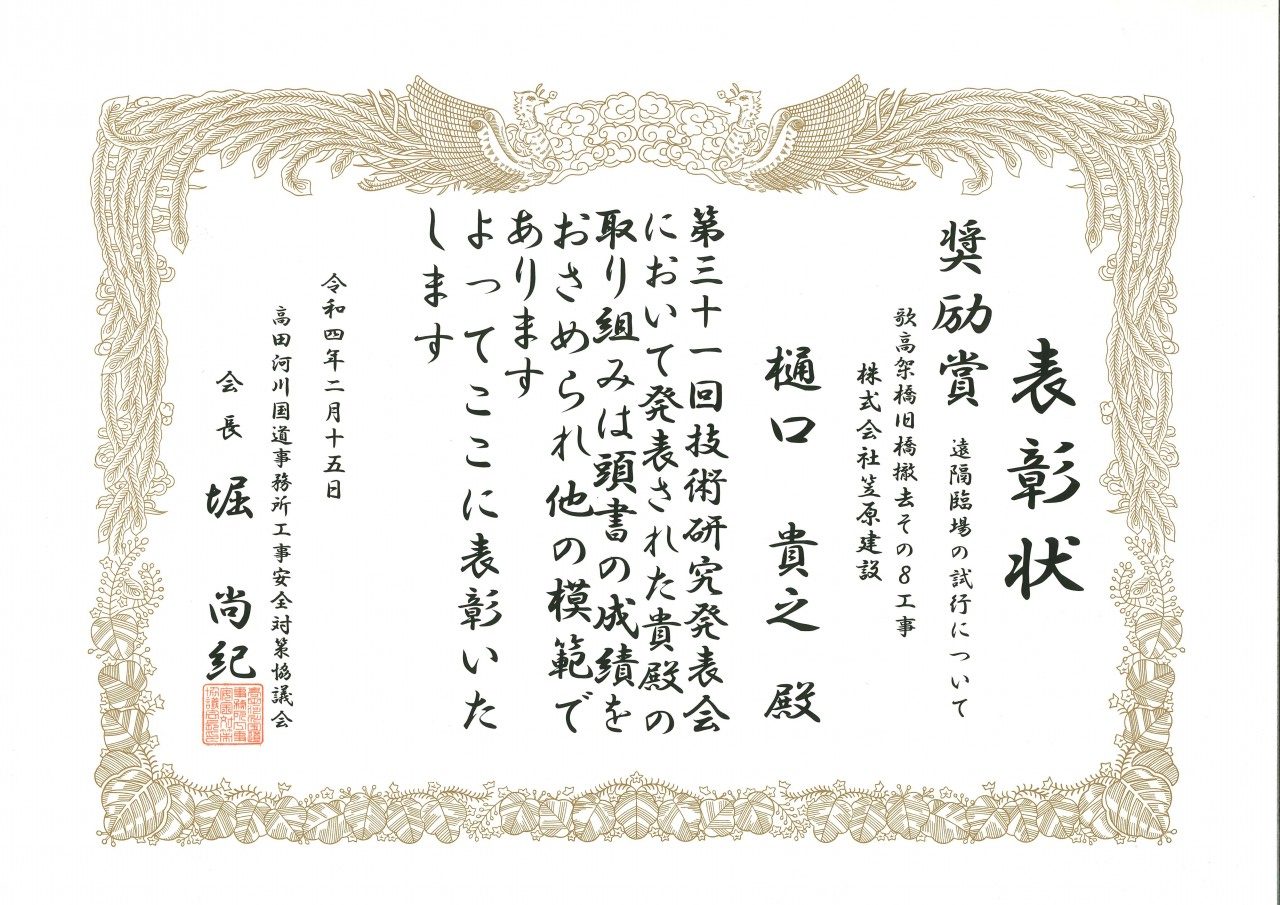 表彰状
奨励賞 遠隔臨場の試行について
歌高架橋旧橋撤去その8工事
株式会社笠原建設
樋口 貴之 殿
第三十一回技術研究発表会
において発表された貴殿の
取り組みは頭書の成績を
おさめられ他の模範で
あります
よってここに表彰いた
します
令和四年二月十五日
高田河川国道事務所工事安全対策協議会
会長 堀 尚紀